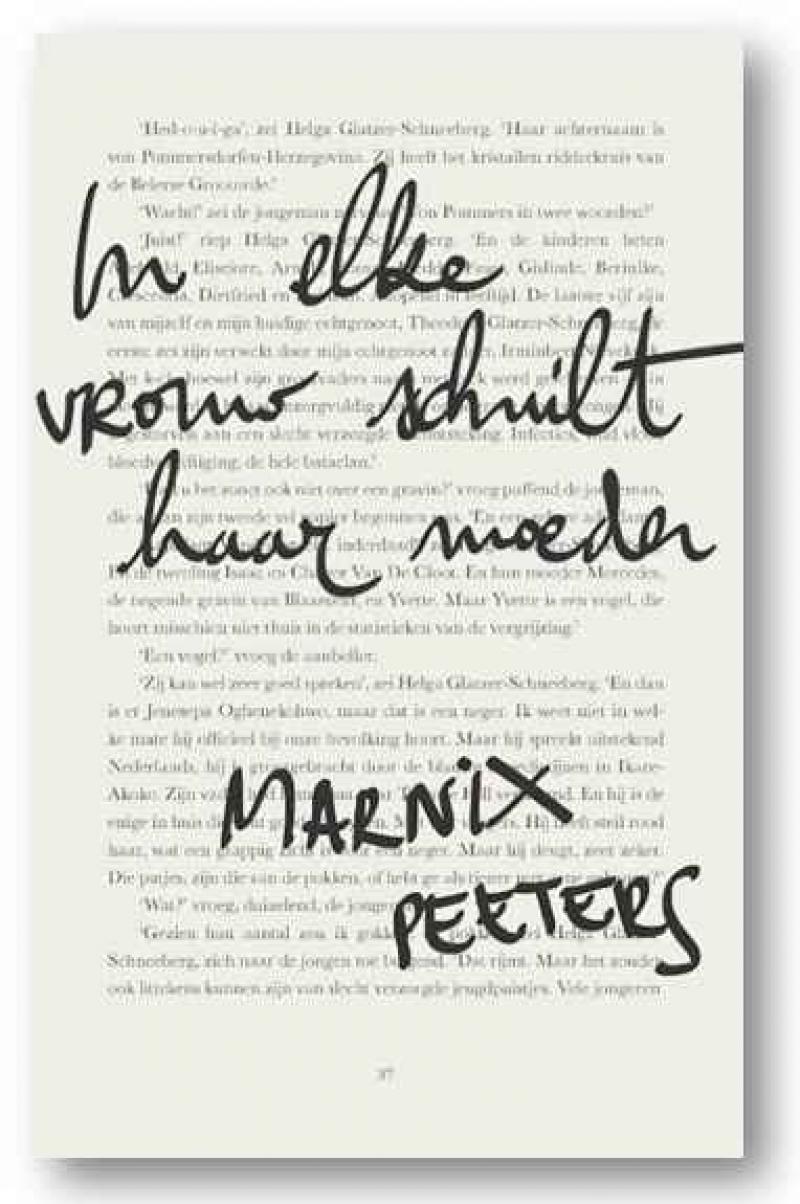 In elke
vrouw schuilt
haar moeder
MARNIX
PEETERS
'Hed-o-u-i-ga', zei Helga Glatzer-Schneeberg. 'Haar achternaam is
von Pommersdorfen-Herzegovina. Zij heeft het kristallen ridderkruis van
de Belerse Grooorde.'
'Wacht!' zei de jongeman Von Pommers in twee woorden?'
'Juist!' riep Helga 'En de kinderen heten
Eliseiore, Gislinde, Berinike,
Dietfried en De laatste vijf zijn
van mijzelf en mijn huidige echtgenoot,
eerste zes zijn verwekt door mijn echtgenoot
werd
aan een slecht verzorgde Infecties,
de hele bataclan.'
u het zonet ook niet over een gravin?' vroeg puffend de
die zijn tweede vel papier begonnen was. 'En een
inderdaad
En de tweeling Isaac en Van De Cloot. En hun moeder Mercedes,
de negende gravin van en Yvette. Maar Yvette is een vogel, die
hoort misschien niet thuis in de statistieken van de vergrijzing.'
'Een vogel?' vroeg de aanbeller.
'Zij kan wel zeer goed spreken', zei Helga Glatzer-Schneeberg. 'En dan
is er Jenetepa Oghenekohwo, maar dat is een neger. Ik weet niet in wel-
ke mate hij officieel bij onze bevolking hoort. Maar hij spreekt uitstekend
Nederlands, hij is grootgebracht door de in Ikare-
Akoko. Zijn En hij is de
enige in huis die Hij heeft steil rood
haar, wat een grappig zicht is voor een neger. Maar hij deugt, zeer zeker.
Die putjes, zijn die van de pokken, of hebt ge als tiener
'Wat?' vroeg, duizelend, de
'Gezien hun aantal zou ik zei Helga
Schneeberg, zich naar de jongen toe buigend. 'Dat rijmt. Maar het zouden
ook littekens kunnen zijn van slecht verzorgde jeugdpuistjes. Vele jongeren
37